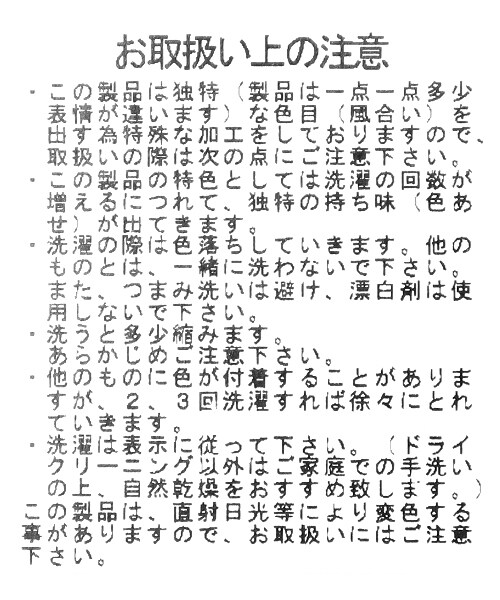 お取扱い上の注意
・この製品は独特（製品は一点一点多少
表情が違います）な色目（風合い）を
出す為特殊な加工をしておりますので、
取扱いの際は次の点にご注意下さい。
・この製品の特色としては洗濯の回数が
増えるにつれて、独特の持ち味（色あ
せ）が出てきます。
・洗濯の際は色落ちしていきます。他の
ものとは、一緒に洗わないで下さい。
また、つまみ洗いは避け、漂白剤は使
用しないで下さい。
・洗うと多少縮みます。
あらかじめご注意下さい。
・他のものに色が付着することがありま
すが、２、３回洗濯すれば徐々にとれ
ていきます。
・洗濯は表示に従って下さい。（ドライ
クリーニング以外はご家庭での手洗い
の上、自然乾燥をおすすめ致します。）
この製品は、直射日光等により変色する
事がありますので、お取扱いにはご注意
下さい。